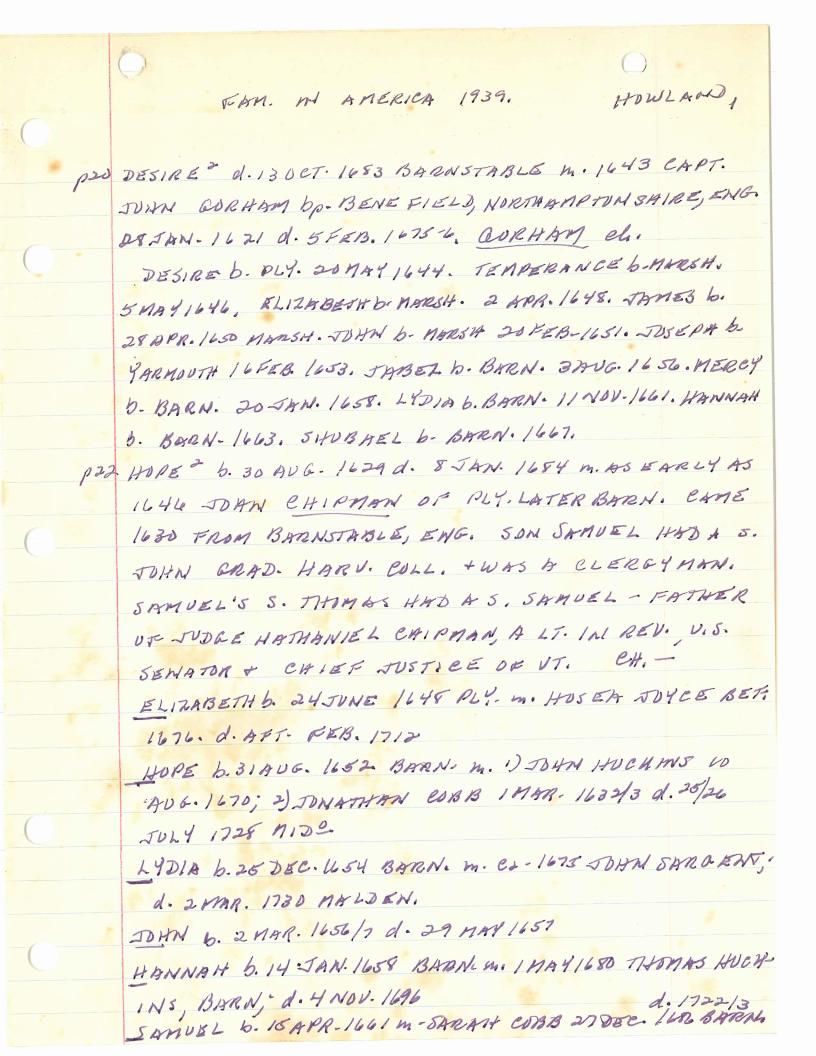 FAM. IN AMERICA 1939. HOWLAND, 1
p20 DESIRE² d. 13 OCT. 1683 BARNSTABLE m. 1643 CAPT.
JOHN GORHAM bp. BENEFIELD, NORTHAMPTONSHIRE, ENG.
28 JAN. 1621 d. 5 FEB. 1675-6. GORHAM ch.
DESIRE b. PLY. 20 MAY 1644. TEMPERANCE b. MARSH.
5 MAY 1646, ELIZABETH b. MARSH. 2 APR. 1648. JAMES b.
28 APR. 1650 MARSH. JOHN b. MARSH 20 FEB. 1651. JOSEPH b
YARMOUTH 16 FEB 1653. JABEL b. BARN. 3 AUG. 1656. MERCY
b. BARN. 20 JAN. 1658. LYDIA b. BARN. 11 NOV. 1661. HANNAH
b. BARN. 1663. SHUBAEL b. BARN. 1667.
p22 HOPE² b. 30 AUG. 1629 d. 8 JAN. 1684 m. AS EARLY AS
1646 JOHN CHIPMAN OF PLY. LATER BARN. CAME
1630 FROM BARNSTABLE, ENG. SON SAMUEL HAD A S.
JOHN GRAD. HARV. COLL. + WAS A CLERGYMAN.
SAMUEL'S S. THOMAS HAD A S. SAMUEL - FATHER
OF JUDGE NATHANIEL CHIPMAN, A LT. IN REV., U.S.
SENATOR + CHIEF JUSTICE OF VT. CH. —
ELIZABETH b. 24 JUNE 1648 PLY. m. HOSEA JOYCE BEF.
1676. d. AFT. FEB. 1712
HOPE b. 31 AUG. 1652 BARN. m. 1) JOHN HUCKINS 10
AUG. 1670; 2) JONATHAN COBB 1 MAR. 1632/3 d. 25/26
JULY 1728 MIDᵒ
LYDIA b. 25 DEC. 1654 BARN. m. ca. 1675 JOHN SARGENT;
d. 2 MAR. 1730 MALDEN.
JOHN b. 2 MAR. 1656/7 d. 29 MAY 1657
HANNAH b. 14 JAN. 1658 BARN. m. 1 MAY 1680 THOMAS HUCK-
INS, BARN; d. 4 NOV. 1696
d. 1722/3
SAMUEL b. 15 APR. 1661 m. SARAH COBB 27 DEC. 1686 BARN.